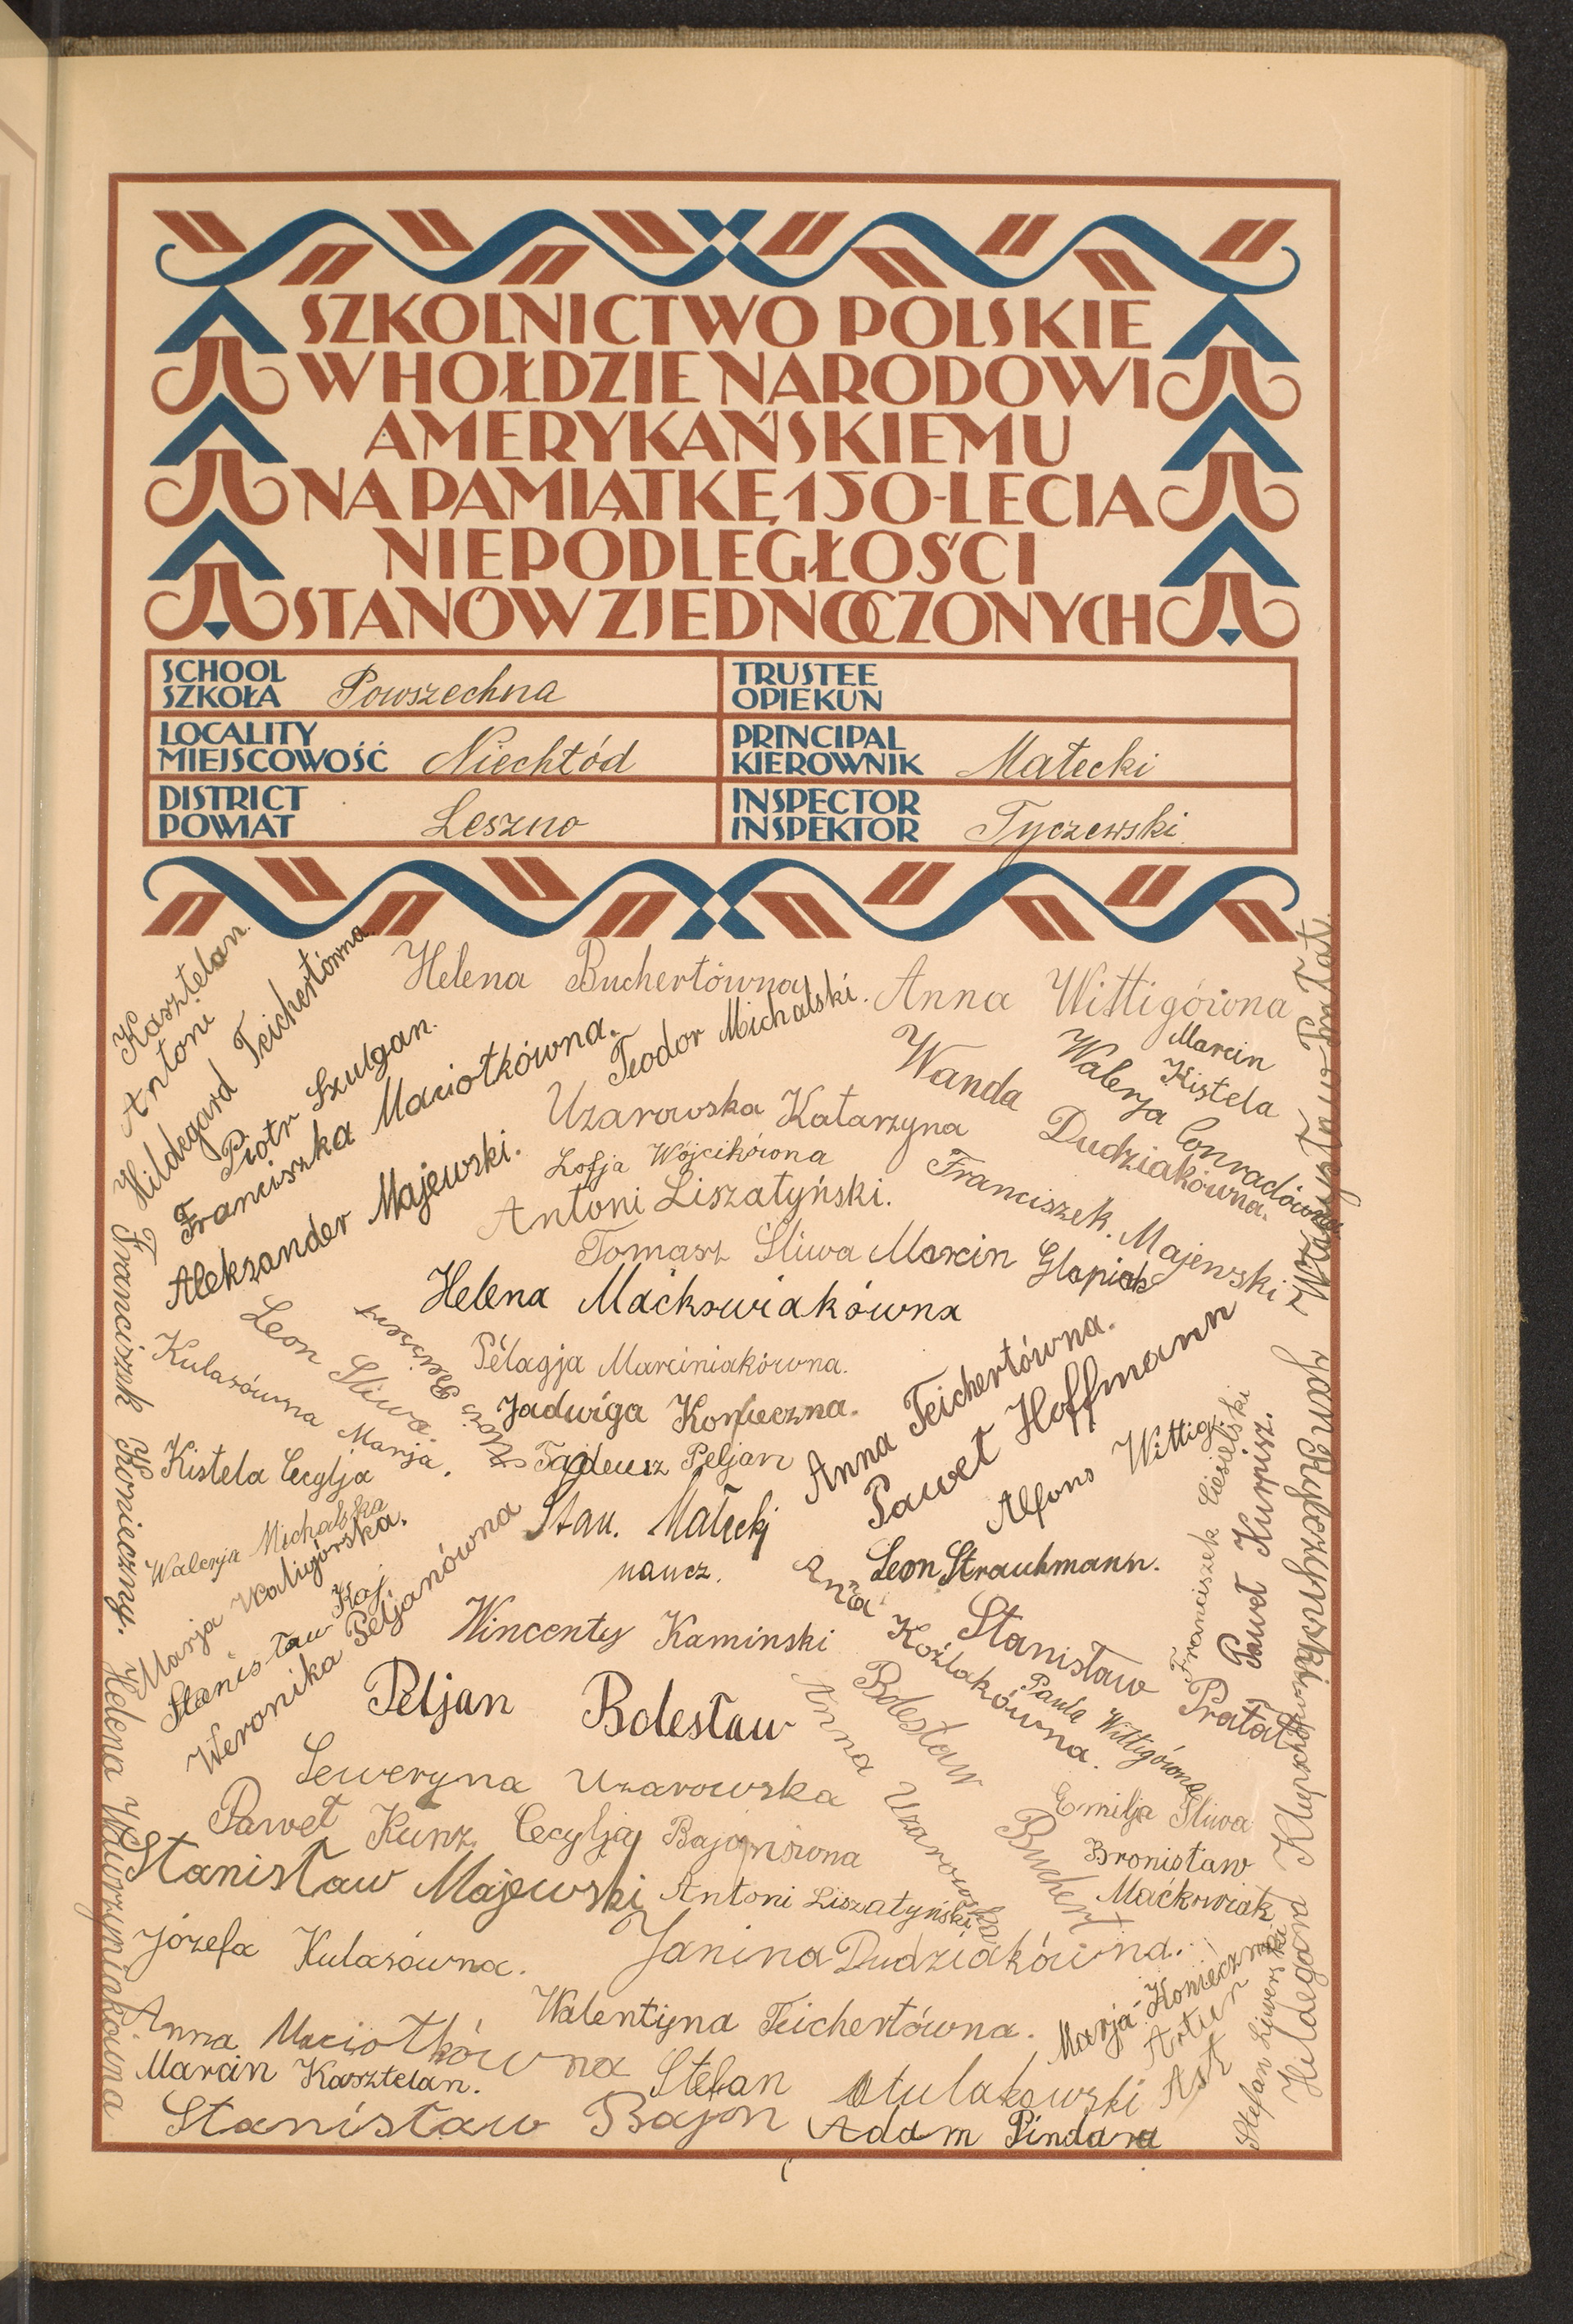 SZKOLNICTWO POLSKIE
W HOŁDZIE NARODOWI
AMERYKAŃSKIEMU
NA PAMIĄTKĘ 150-LECIA
NIEPODLEGŁOŚCI
STANÓW ZJEDNOCZONYCH
SCHOOL
SZKOŁA Powszechna
TRUSTEE
OPIEKUN
LOCALITY
MIEJSCOWOŚĆ Niechłód
PRINCIPAL
KIEROWNIK Małecki
DISTRICT
POWIAT Leszno
INSPECTOR
INSPEKTOR Tyczewski
Kasztelan
Antoni
Hildegard Teichertówna
Piotr Szulgan.
Franciszka Maciotkówna.
Aleksander Majewski.
Helena Buchertówna
Teodor Michalski.
Anna Wittigówna
Marcin
Kistela
Walerja Conradówna
Wanda Dudziakówna.
Uzarowska Katarzyna
Zofja Wójcikówna
Antoni Liszatyński.
Franciszek. Majewski
Tomasz Śliwa
Marcin Glapiak
Władysław Prałat.
Helena Maćkowiakówna
Leon Śliwa.
Kulasówna Marja.
Pelagja Marciniakówna.
Jadwiga Konieczna.
Tadeusz Peljan
Anna Teichertówna.
Paweł Hoffmann
Alfons Wittig.
Kistela Cecylja
Walerja Michalska
Marja Waligórska.
Stanisław Kaj
Weronika Peljanówna
Stan. Małecki
naucz.
Leon Straukmann.
Franciszek Ciesielski
Paweł Kurpisz.
Franciszek Konieczny.
Helena Wawrzyniakówna
Wincenty Kaminski
Anna Koźlakówna.
Stanisław Prałat
Paula Wittigówna
Peljan Bolesław
Bolesław Buchert
Anna Uzarowska
Seweryna Uzarowska
Emilja Śliwa
Paweł Kunz
Cecylja Bajonówna
Bronisław
Maćkowiak
Stanisław Majewski
Antoni Liszatyński
Józefa Kulasówna.
Janina Dudziakówna.
Marja Konieczna
Artur
Ast
Walentyna Teichertówna.
Anna Maciotkówna
Marcin Kasztelan.
Stefan
Stanisław Bajon
Adam Pindara
Stefan
Hildegard